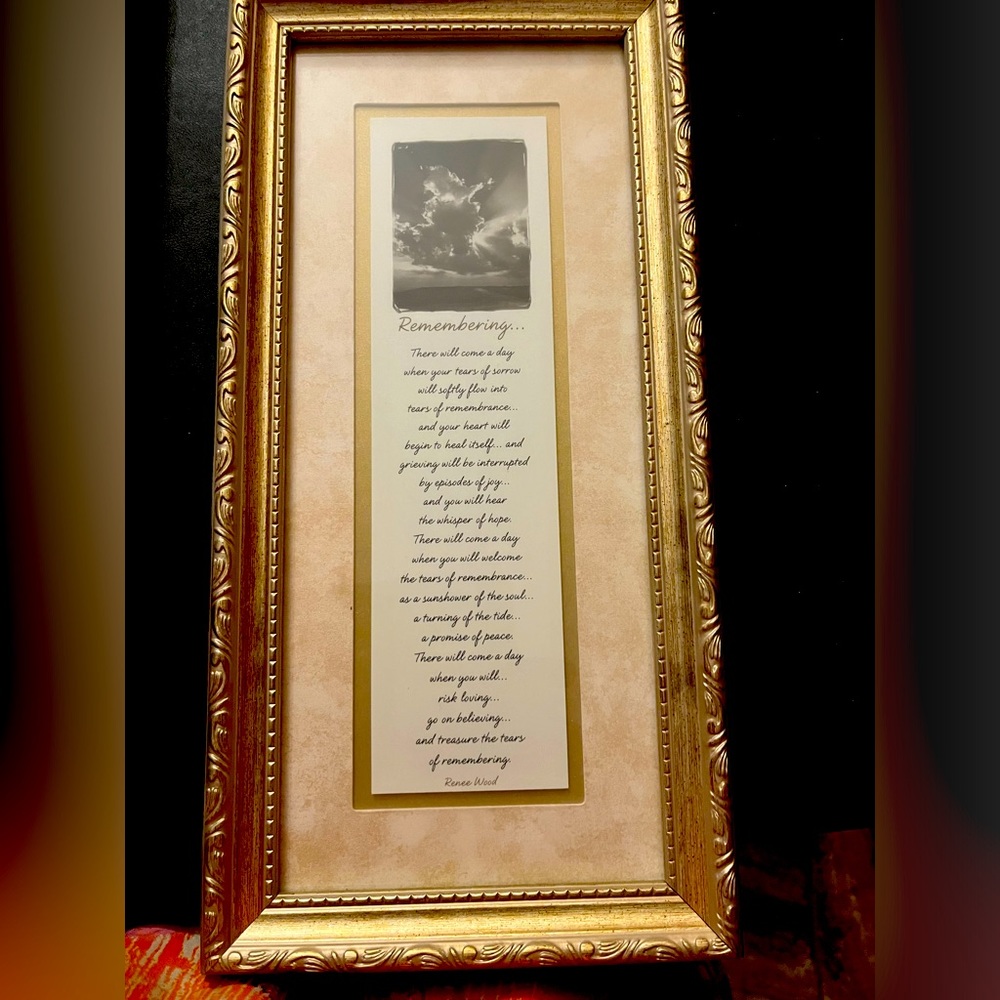 Remembering...
There will come a day
when your tears of sorrow
will softly flow into
tears of remembrance...
and your heart will
begin to heal itself... and
grieving will be interrupted
by episodes of joy...
and you will hear
the whisper of hope.
There will come a day
when you will welcome
the tears of remembrance...
as a sunshower of the soul...
a turning of the tide...
a promise of peace.
There will come a day
when you will...
risk loving...
go on believing...
and treasure the tears
of remembering.
Renee Wood